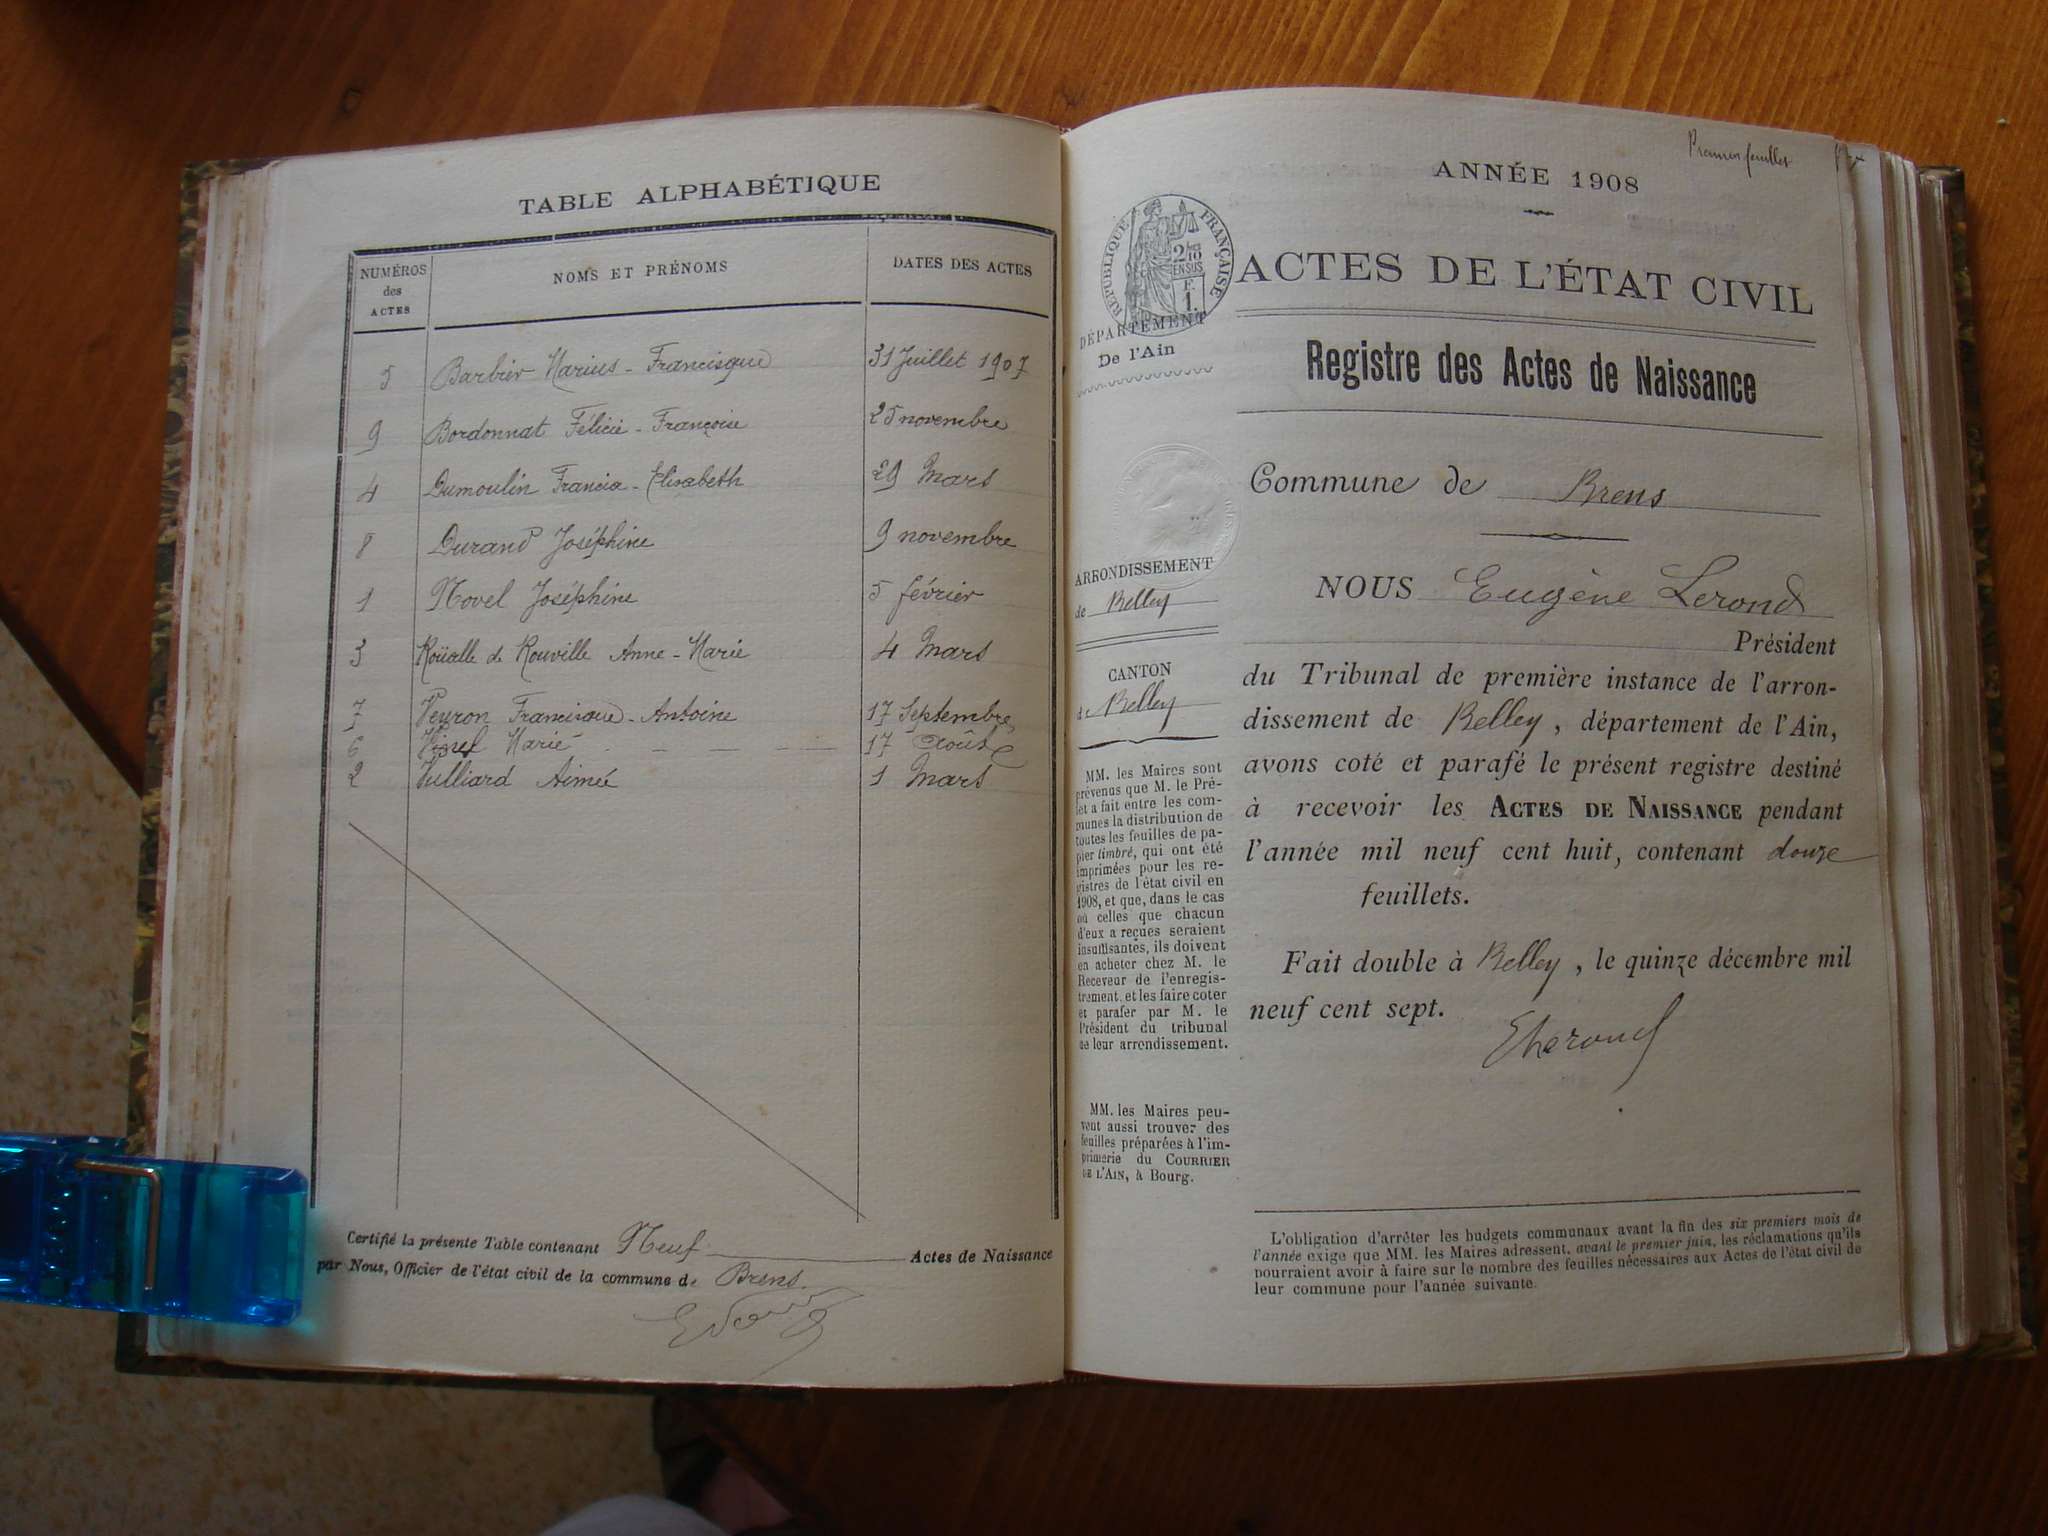 TABLE ALPHABÉTIQUE
NUMÉROS des ACTES NOMS ET PRÉNOMS DATES DES ACTES
5 Barbier Marius - Francisque 31 Juillet 1907
9 Bordonnat Félicie - Françoise 25 novembre
4 Dumoulin Francia - Elisabeth 29 Mars
8 Durand Joséphine 9 novembre
1 Novel Joséphine 5 février
3 Roüalle de Rouville Anne - Marie 4 Mars
7 Peyron Francisque - Antoine 17 Septembre
6 Marie 17 Août
2 Vulliard Aimée 1 Mars
Certifié la présente Table contenant Neuf Actes de Naissance
par Nous, Officier de l'état civil de la commune de Brens.
Premier feuillet
ANNÉE 1908
RÉPUBLIQUE FRANÇAISE
2/10 EN SUS
F. 1
ACTES DE L'ÉTAT CIVIL
DÉPARTEMENT
De l'Ain
Registre des Actes de Naissance
Commune de Brens
ARRONDISSEMENT
de Belley
CANTON
de Belley
NOUS Eugène Lerond
Président
du Tribunal de première instance de l'arron-
dissement de Belley, département de l'Ain,
avons coté et parafé le présent registre destiné
à recevoir les ACTES DE NAISSANCE pendant
l'année mil neuf cent huit, contenant douze
feuillets.
Fait double à Belley, le quinze décembre mil
neuf cent sept.
MM. les Maires sont
prévenus que M. le Pré-
fet a fait entre les com-
munes la distribution de
toutes les feuilles de pa-
pier timbré, qui ont été
imprimées pour les re-
gistres de l'état civil en
1908, et que, dans le cas
où celles que chacun
d'eux a reçues seraient
insuffisantes, ils doivent
en acheter chez M. le
Receveur de l'enregis-
trement, et les faire coter
et parafer par M. le
Président du tribunal
de leur arrondissement.
MM. les Maires peu-
vent aussi trouver des
feuilles préparées à l'im-
primerie du COURRIER
DE L'AIN, à Bourg.
L'obligation d'arrêter les budgets communaux avant la fin des six premiers mois de
l'année exige que MM. les Maires adressent, avant le premier juin, les réclamations qu'ils
pourraient avoir à faire sur le nombre des feuilles nécessaires aux Actes de l'état civil de
leur commune pour l'année suivante.